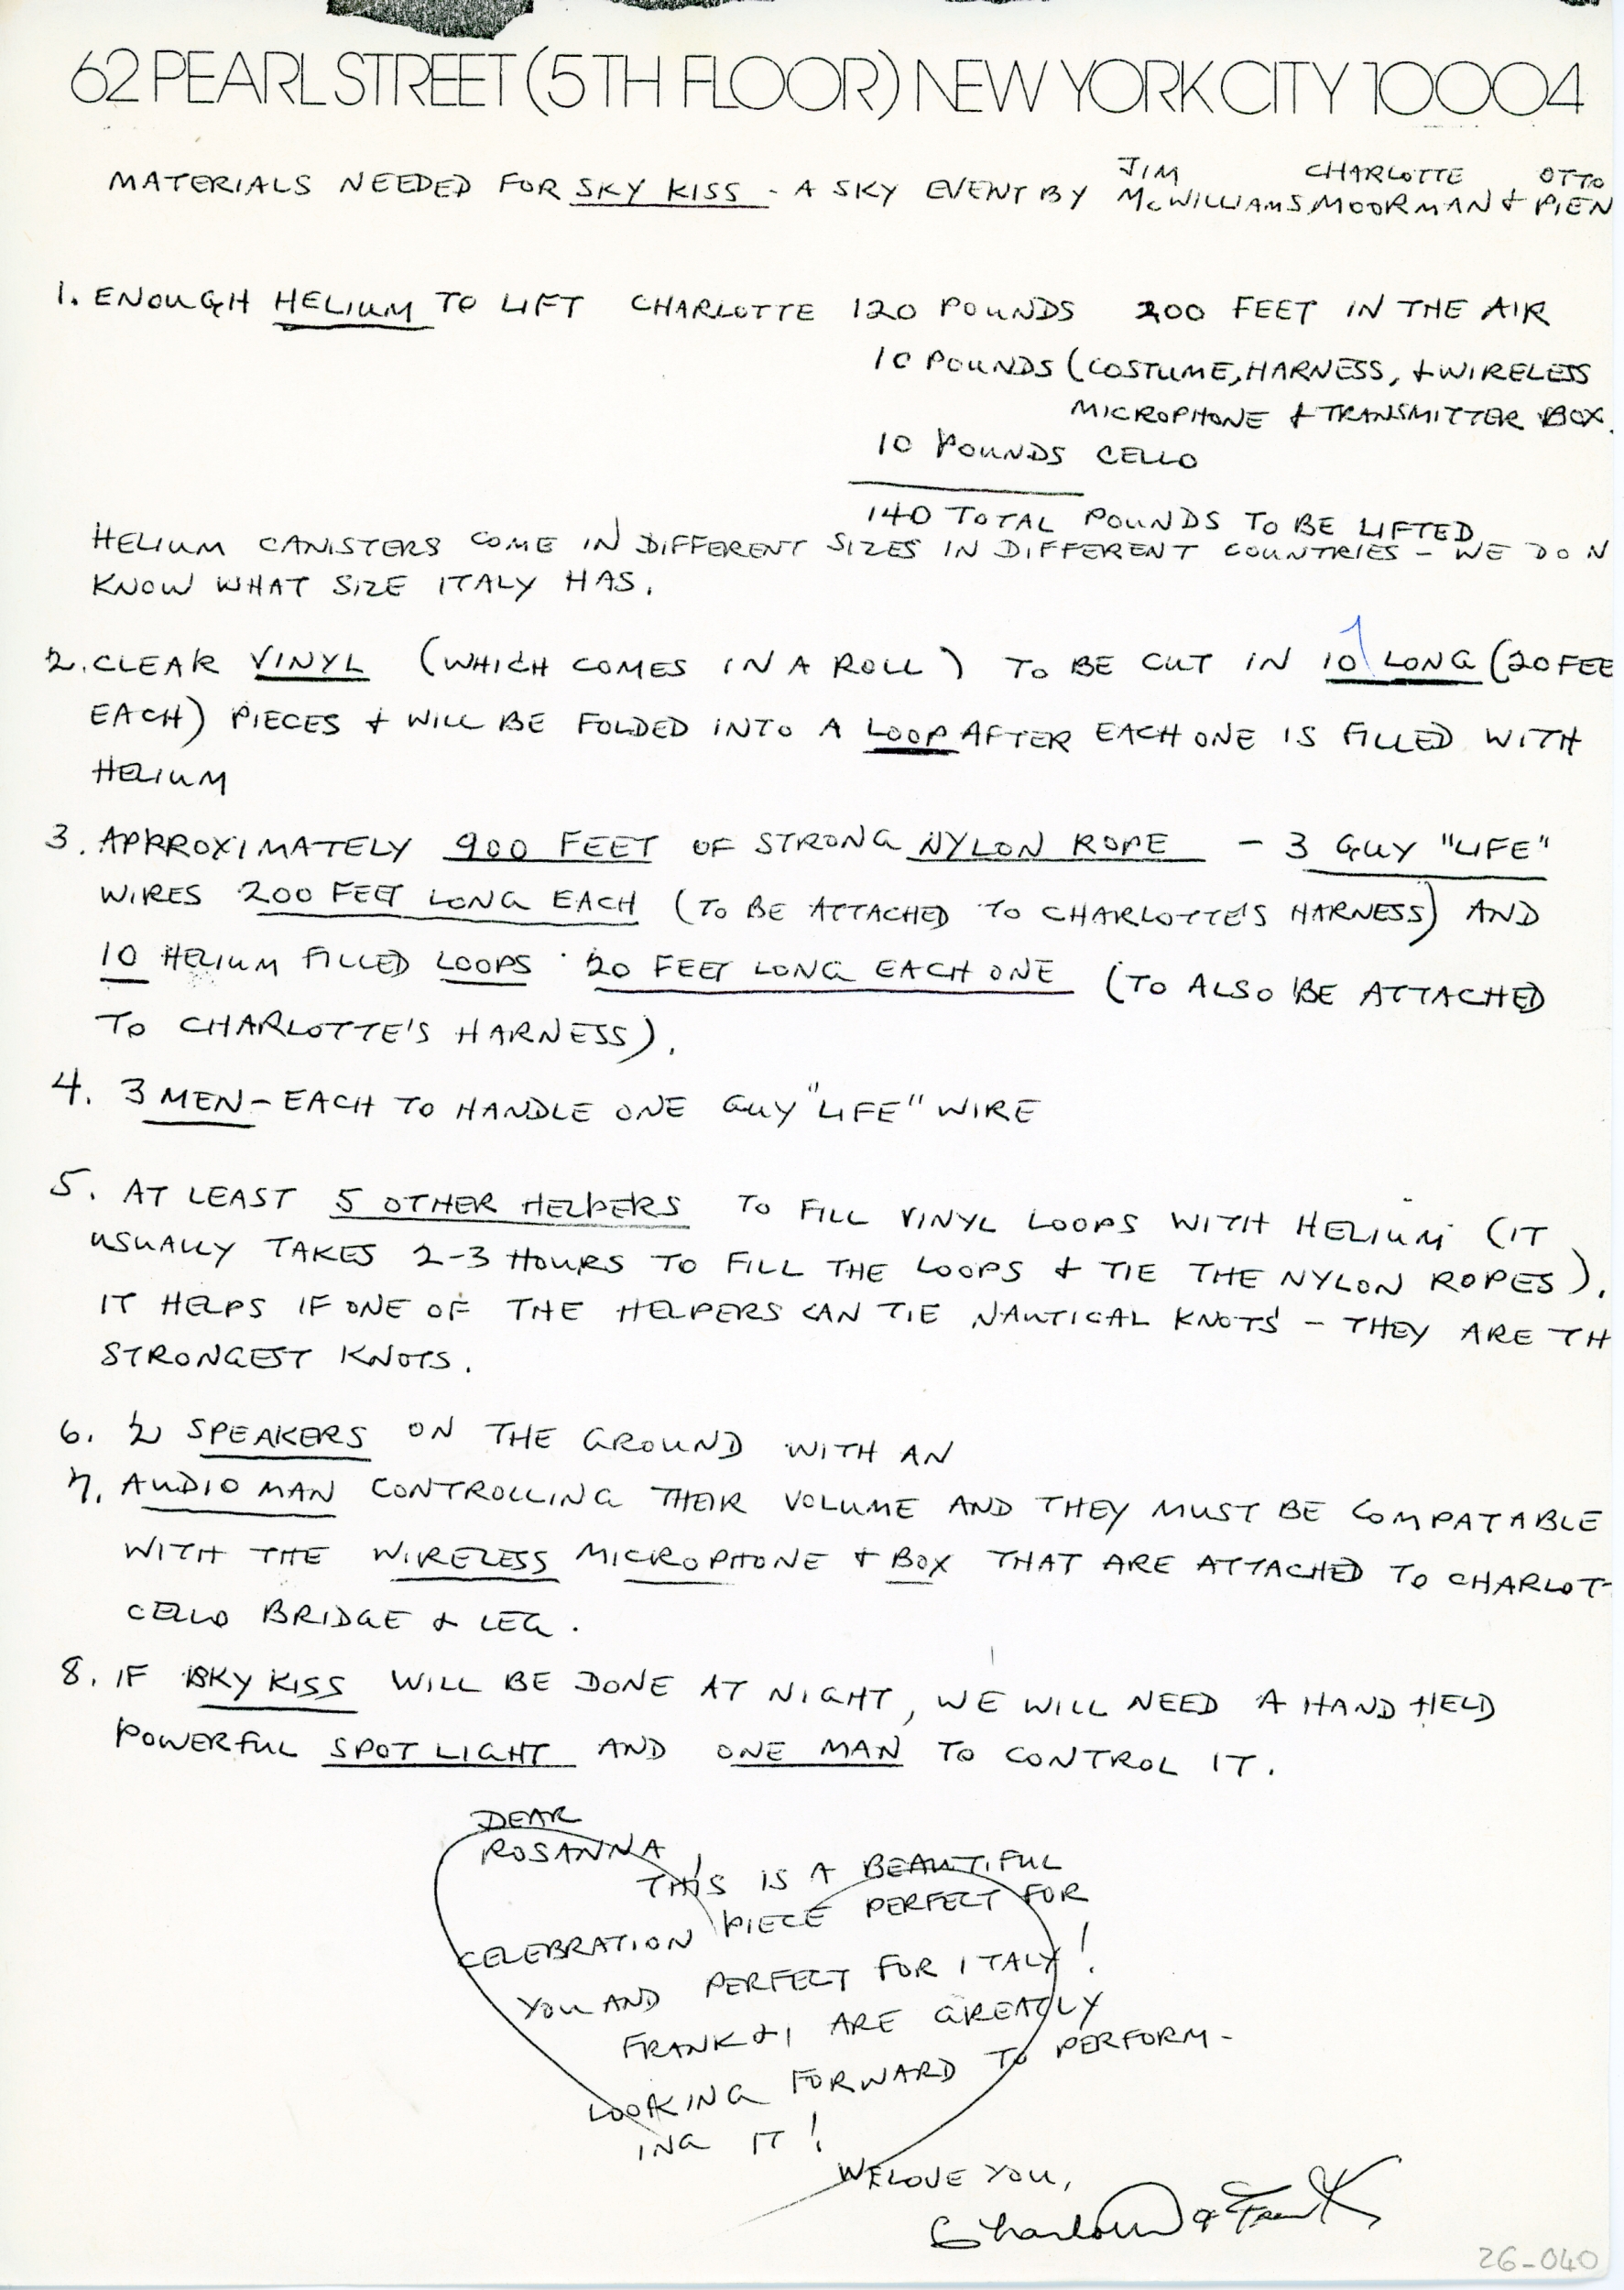 62 PEARL STREET (5TH FLOOR) NEW YORK CITY 10004
MATERIALS NEEDED FOR SKY KISS - A SKY EVENT BY JIM McWILLIAMS, CHARLOTTE MOORMAN & OTTO PIEN
1. ENOUGH HELIUM TO LIFT CHARLOTTE 120 POUNDS 200 FEET IN THE AIR
10 POUNDS (COSTUME, HARNESS, & WIRELESS
MICROPHONE & TRANSMITTER BOX.
10 POUNDS CELLO
140 TOTAL POUNDS TO BE LIFTED
HELIUM CANISTERS COME IN DIFFERENT SIZES IN DIFFERENT COUNTRIES - WE DO N
KNOW WHAT SIZE ITALY HAS.
2. CLEAR VINYL (WHICH COMES IN A ROLL) TO BE CUT IN 10 LONG (20 FEE
EACH) PIECES & WILL BE FOLDED INTO A LOOP AFTER EACH ONE IS FILLED WITH
HELIUM
3. APPROXIMATELY 900 FEET OF STRONG NYLON ROPE - 3 GUY "LIFE"
WIRES 200 FEET LONG EACH (TO BE ATTACHED TO CHARLOTTE'S HARNESS) AND
10 HELIUM FILLED LOOPS 20 FEET LONG EACH ONE (TO ALSO BE ATTACHED
TO CHARLOTTE'S HARNESS).
4. 3 MEN - EACH TO HANDLE ONE GUY "LIFE" WIRE
5. AT LEAST 5 OTHER HELPERS TO FILL VINYL LOOPS WITH HELIUM (IT
USUALLY TAKES 2-3 HOURS TO FILL THE LOOPS & TIE THE NYLON ROPES).
IT HELPS IF ONE OF THE HELPERS CAN TIE NAUTICAL KNOTS - THEY ARE TH
STRONGEST KNOTS.
6. 2 SPEAKERS ON THE GROUND WITH AN
7. AUDIO MAN CONTROLLING THEIR VOLUME AND THEY MUST BE COMPATABLE
WITH THE WIRELESS MICROPHONE & BOX THAT ARE ATTACHED TO CHARLOT
CELLO BRIDGE & LEG.
8. IF SKY KISS WILL BE DONE AT NIGHT, WE WILL NEED A HAND HELD
POWERFUL SPOT LIGHT AND ONE MAN TO CONTROL IT.
DEAR
ROSANNA,
THIS IS A BEAUTIFUL
CELEBRATION PIECE PERFECT FOR
YOU AND PERFECT FOR ITALY!
FRANK & I ARE GREATLY
LOOKING FORWARD TO PERFORM-
ING IT!
WE LOVE YOU,
Charlotte & Frank
26-040